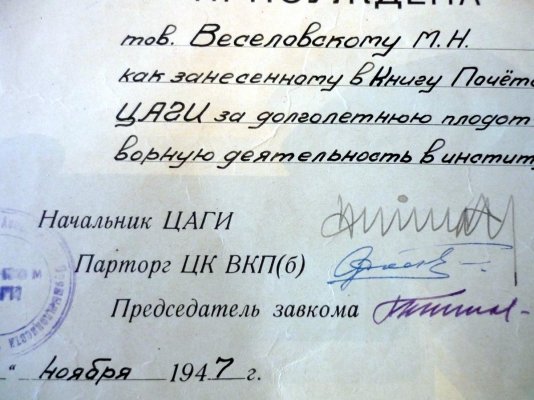 ПРИСУЖДЕНА
тов. Веселовскому М.Н.
как занесенному в Книгу Почёта
ЦАГИ за долголетнюю плодот
ворную деятельность в институ
Начальник ЦАГИ
Парторг ЦК ВКП(б)
Председатель завкома
" ноября 1947 г.